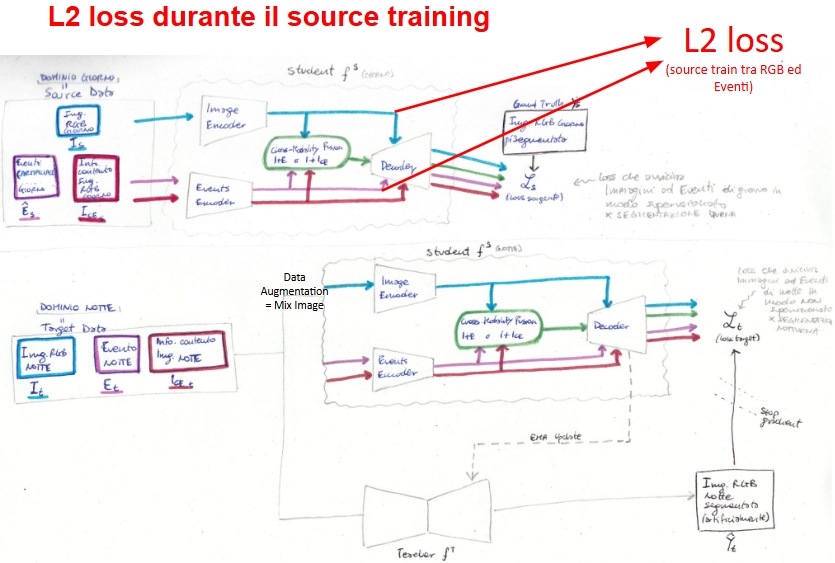 L2 loss durante il source training
L2 loss
(source train tra RGB ed
Eventi)
DOMINIO GIORNO:
Source Data
Img.
RGB
GIORNO
Is
Evento
GIORNO
Ês
Info.
contenuto
Img.
RGB
GIORNO
ICE
Student fˢ (GIORNO)
Image
Encoder
Cross-Mobility Fusion
I+E o I+ICE
Events
Encoder
Decoder
Ground Truth Ys
Img. RGB Giorno
già segmentato
Ls
(loss sorgente)
loss che
Immagini ed Eventi di giorno in
modo supervisionato
x SEGMENTAZIONE DIURNA
DOMINIO NOTTE:
Target Data
Img. RGB
NOTTE
It
Evento
NOTTE
Et
Info. contenuto
Img. NOTTE
ICEt
Data
Augmentation
= Mix Image
Student fˢ (NOTTE)
Image
Encoder
Cross-Mobility Fusion
I+E o I+ICE
Events
Encoder
Decoder
loss che
Immagini ed Eventi
di notte in
modo NON
supervisionato
x SEGMENTAZIONE
NOTTURNA
Lt
(loss target)
Stop
gradient
EMA Update
Teacher fᵀ
Img. RGB
Notte
segmentata
(artificialmente)
Ŷt